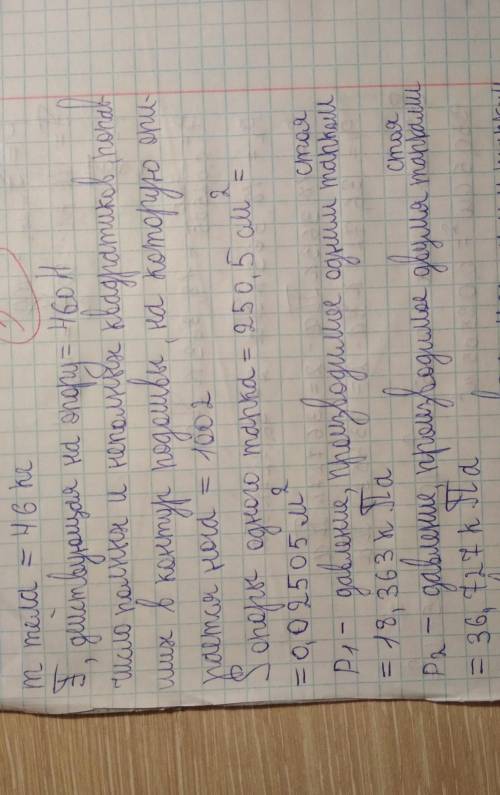 m тела = 46 кг
F, действующая на опору = 460 Н
число полных и неполных квадратиков, попав-
ших в контур подошвы, на которую опи-
рается нога = 1002
S опоры одного тапка = 250,5 см² =
= 0,02505 м²
стоя
P₁ - давление, производимое одним тапком
= 18,363 кПа
стоя
P₂ - давление, производимое двумя тапками
= 36,727 кПа